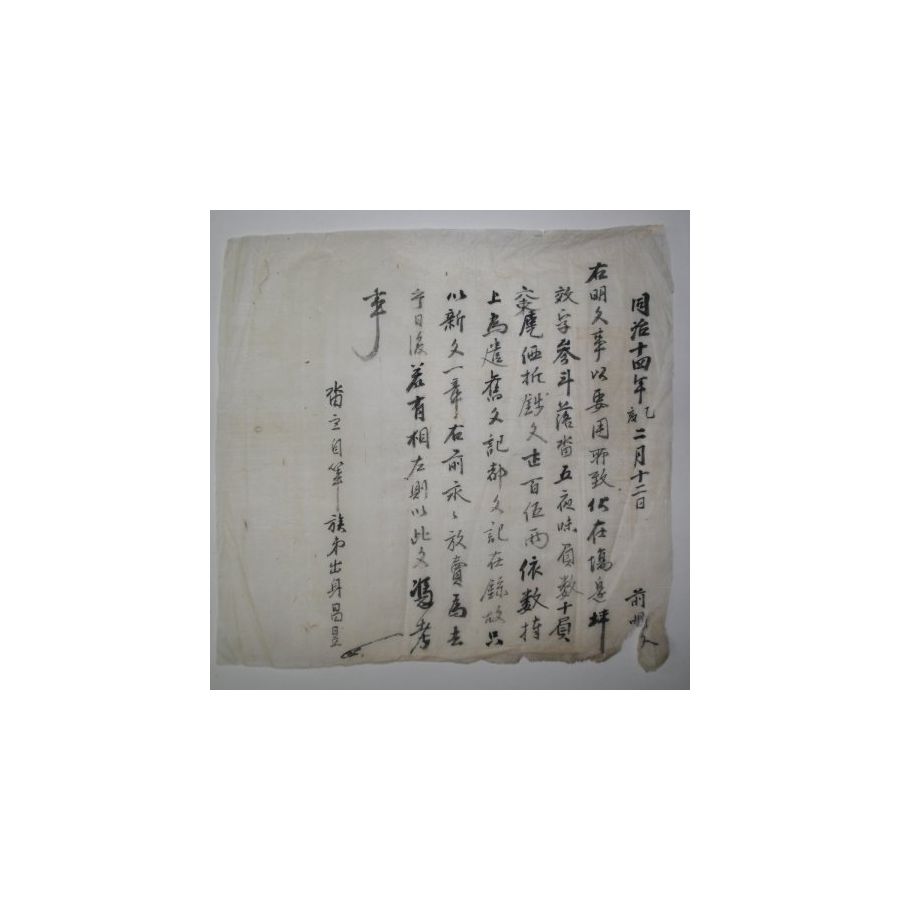 同治十四年乙亥二月十二日 前明文
右明文事以要用所致伏在塲邊坪
字參斗落畓五夜味負數十負
價折錢文百伍兩依數捧
上爲遣舊文記都文記在錄故只
以新文一章右前永〻放賣爲去
乎日後若有相左則以此文憑考
事
畓主自筆族弟出身昌